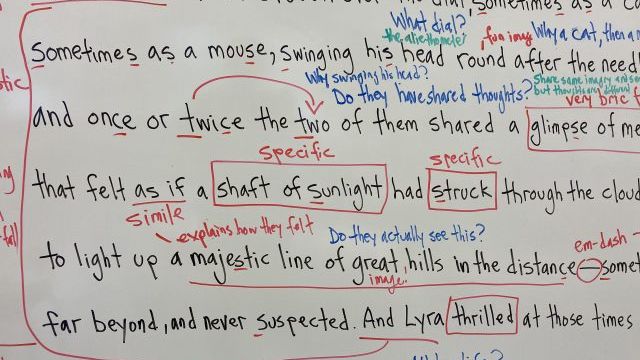 sometimes as a
What dial?
the alethiometer
, fun imag
Why a cat, then a
Sometimes as a mouse, swinging his head round after the need
otic
Why swinging his head?
Do they have shared thoughts?
Share same imagry and
but thoughts
very
and once or twice the two of them shared a glimpse of me
specific
specific
that felt as if a shaft of sunlight had struck through the cloud
simile
explains how they felt
Do they actually see this?
em-dash
to light up a majestic line of great hills in the distance—somet
image
far beyond, and never suspected. And Lyra thrilled at those times